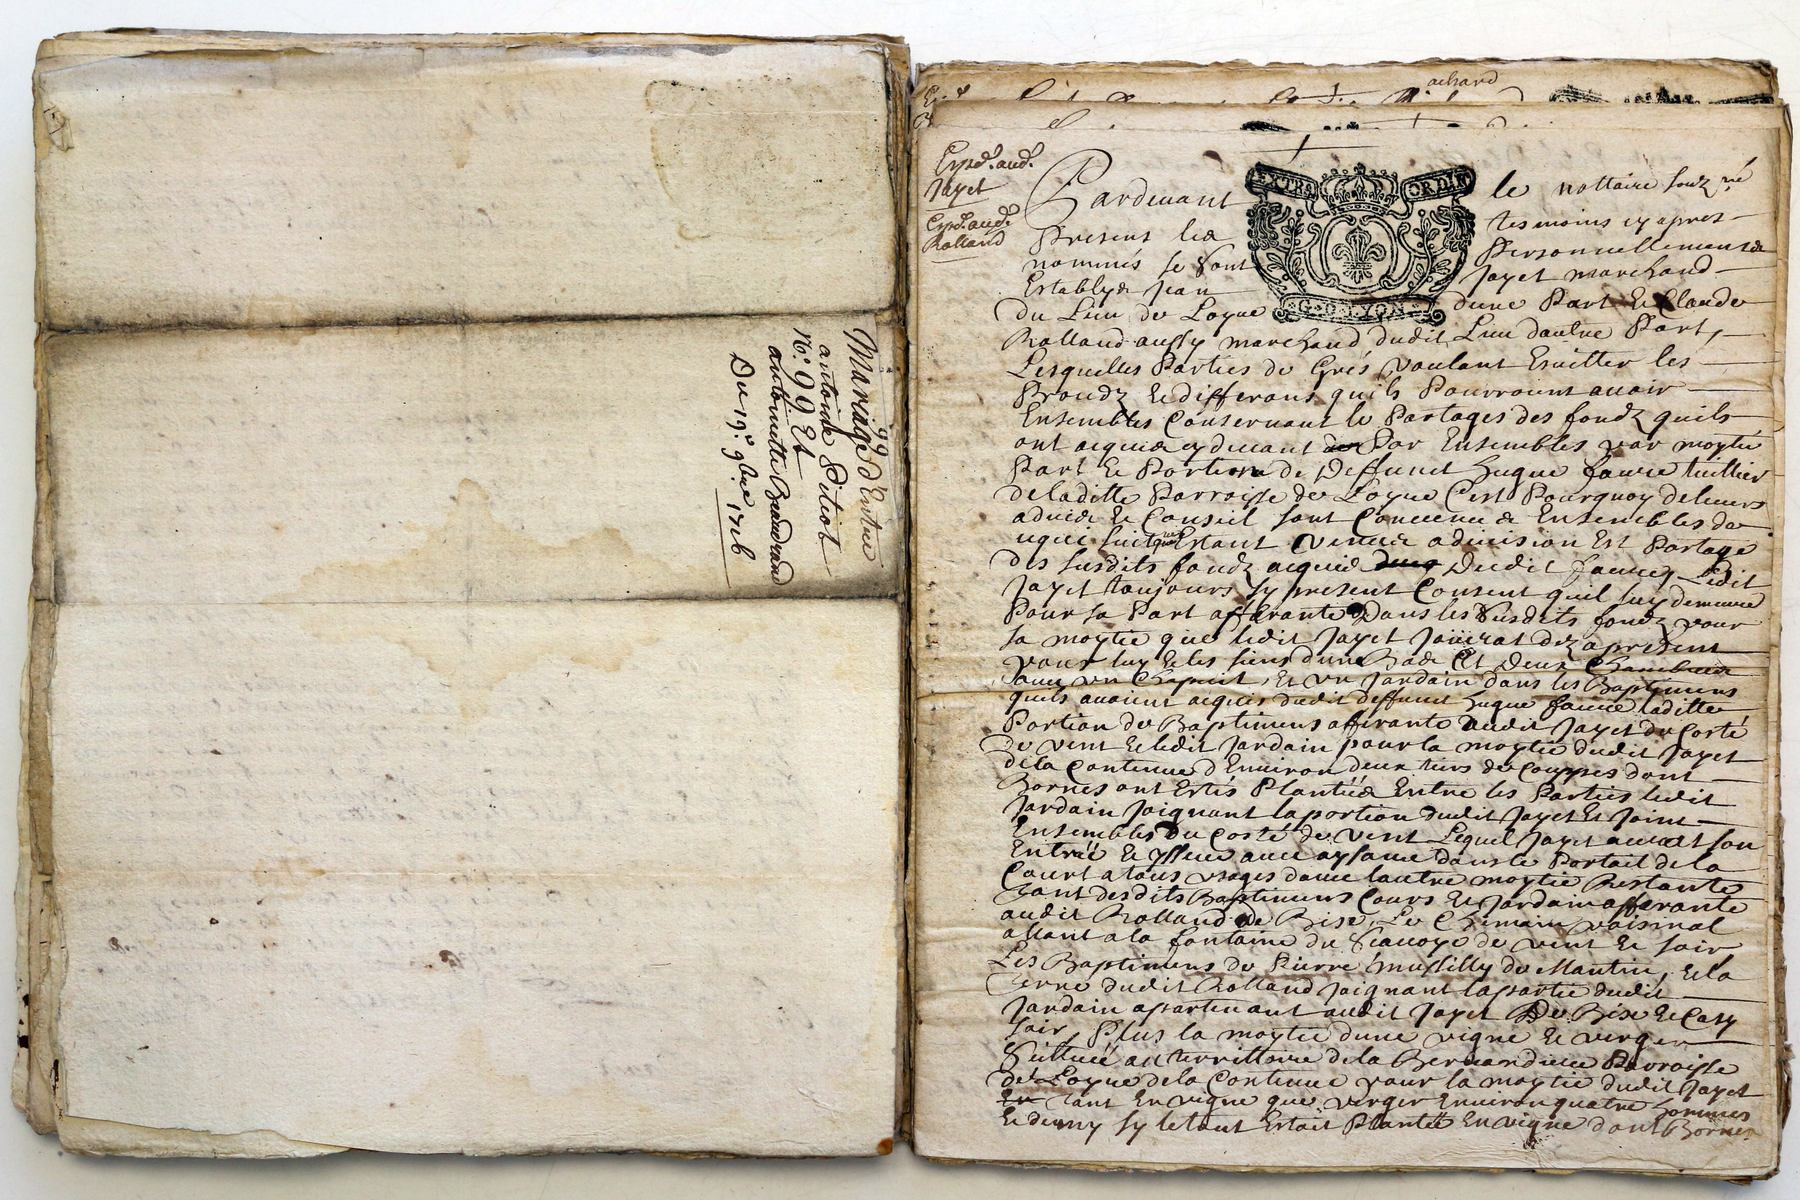 Mariage d'Entre
99
antoine Pitiot
N.º 99 Et
antoinette Beaudrand
Du 19.e 9bre 1716
achard
Exped. aud.
Jayet
Exped. aud.
Rolland
EXTRA ORDIN
G. DE LYON
Pardevant le nottaire souz.né
Presens les tesmoins cy apres
nommés se sont Personnellement
Establys Jean Jayet marchand
du Lieu de Loyve dune Part Et Claude
Rolland aussy marchand dudit Lieu dautre Part,
Lesquelles Parties de Grés voulant Esvitter les
Proudz Et differans quils Pourroint avoir
Ensembles Consernant le Partages des fondz quils
ont acquis cy devant Par Ensembles par moytié
Part Et Portion de Deffunct hugue faure tuillier
de laditte Parroisse de Loyve C'est Pourquoy de leurs
advis Et Conseil sont Convenus Ensembles de
ce qui suit que Estant venus a division Et Partage
des susdits fondz acquis Dudit faure, Ledit
Jayet toujours sy present Consent quil luy demeure
Pour sa Part afférante Dans les susdits fondz pour
sa moytié que ledit Jayet Jouirat dez a present
pour luy Et les siens dune Et Deux Chambres
avec un Chapuit, Et un Jardain dans les Baptimens
quils avoient acquis dudit deffunct hugue faure laditte
Portion de Baptimens afferante audit Jayet du Costé
de vent Et ledit Jardain pour la moytié dudit Jayet
de la Contenue d'Environ deux tiers de Couppes dont
Bornes ont Estés Plantées Entre les Parties ledit
Jardain Joignant la portion dudit Jayet Et Joint
Ensembles Du Costé de vent Lequel Jayet aurat son
Entrée Et yssue avec aysance dans le Portail de la
Court a tous usages avec lautre moytié Restante
tant desdits Baptimens Cours Et Jardain afferante
audit Rolland de Bise, Le Chemain voisinal
allant a la fontaine du de vent Et soir
Les Baptimens de Pierre Mussilly de Mantin, Et la
terre dudit Rolland Joignant la partie dudit
Jardain appartenant audit Jayet De Bise Et
soir, Plus la moytié dune vigne Et verger
Scittuée au territtoire de la Bernandiere Parroisse
de Loyve de la Contenue pour la moytié dudit Jayet
tant En vigne que verger Environ quatre hommes
Et demy sy le tout Estoit Plantée En vigne dont Bornes